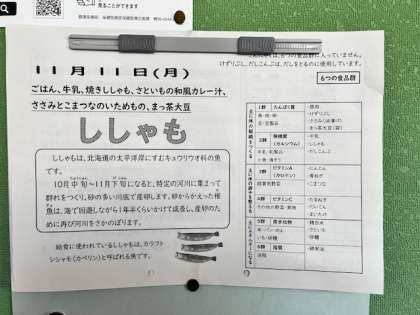 見ることができます
は入っていません。
けずりぶし、だしこんぶは、だしをとるのに使用しています。
11月11日(月)
6つの食品群
ごはん、牛乳、焼きししゃも、さといもの和風カレー汁、
ささみとこまつなのいためもの、まっ茶大豆
ししゃも
ししゃもは、北海道の太平洋岸にすむキュウリウオ科の魚
です。
10月中旬～11月下旬になると、特定の河川に集まって
群れをつくり、砂の多い川底で産卵します。卵からかえった稚
魚は、海で回遊しながら1年半くらいかけて成長し、産卵のた
めに再び河川をさかのぼります。
給食に使われているししゃもは、カラフト
シシャモ(カペリン)と呼ばれる魚です。
1群
たんぱく質
豚肉
けずりぶし
まっ茶大豆
2群
無機質
(カルシウム)
牛乳
ししゃも
だしこんぶ
3群
ビタミンA
(カロテン)
緑黄色野菜
にんじん
こまつな
4群
ビタミンC
その他の野菜・果物
たまねぎ
だいこん
まいたけ
5群
炭水化物
精白米
さといも
砂糖
6群
脂質
油脂